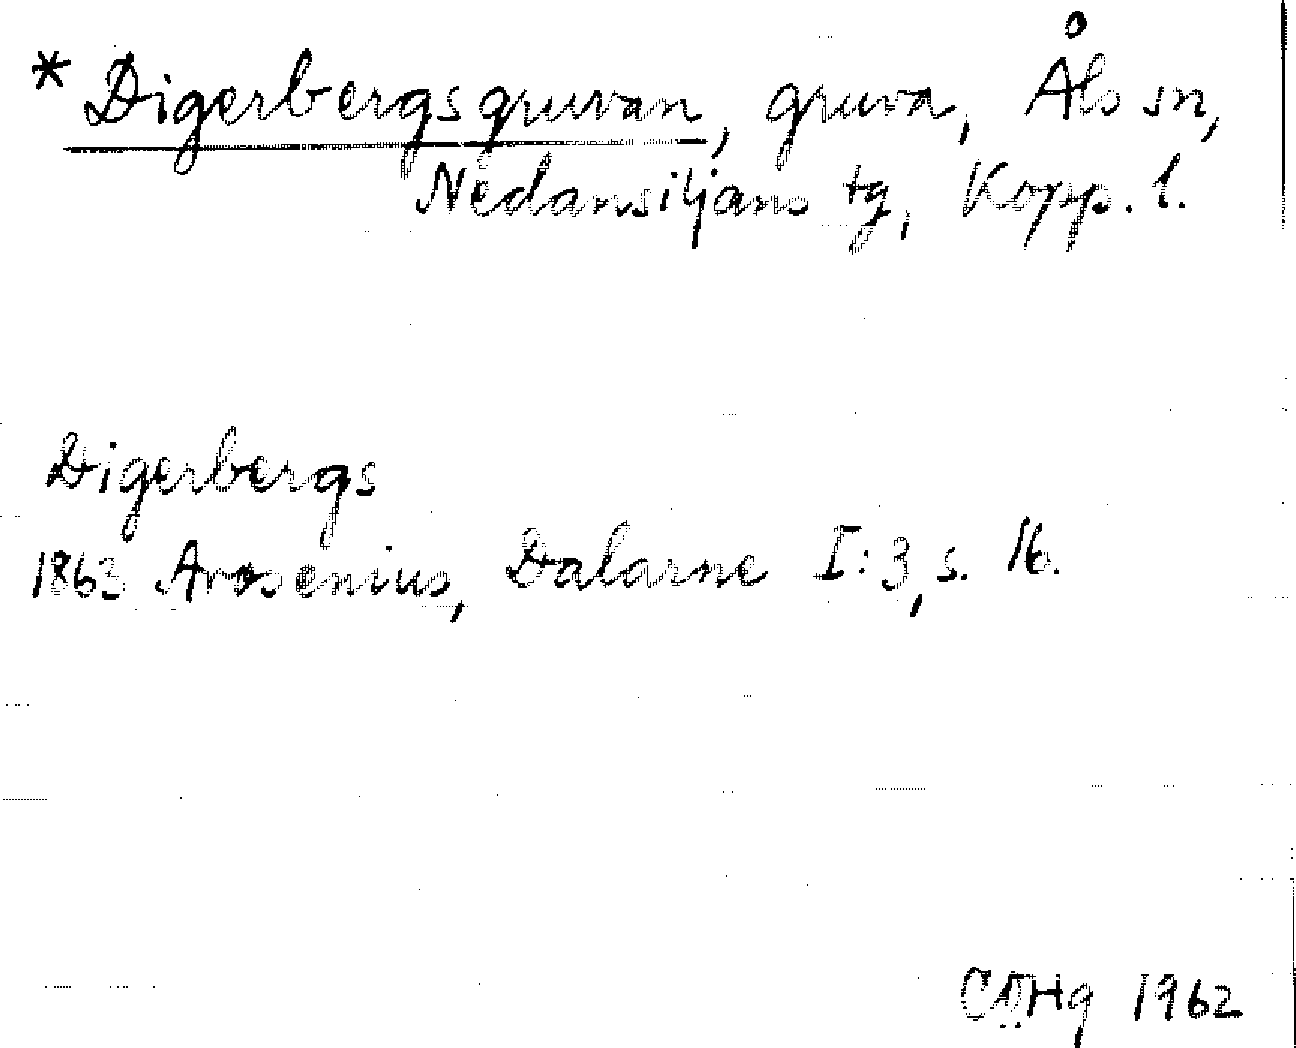 * Digerbergsgruvan, gruva, Åls sn,
Nedansiljans tg, Kopp. l.
Digerbergs
1863 Arosenius, Dalarne I:3, s. 16.
1962